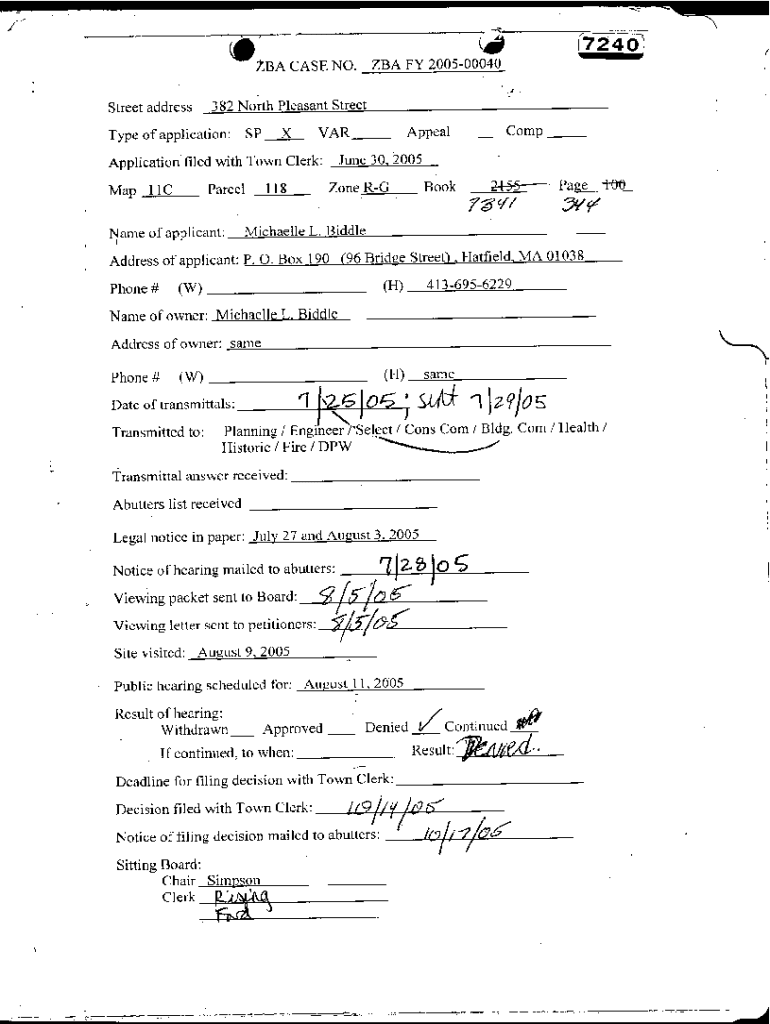 7240
ZBA CASE NO. ZBA FY 2005-00040
Street address 382 North Pleasant Street
Type of application: SP X VAR Appeal Comp
Application filed with Town Clerk: June 30, 2005
Map 11C Parcel 118 Zone R-G Book 2155 Page 100
7341 344
Name of applicant: Michaelle L. Biddle
Address of applicant: P. O. Box 190 (96 Bridge Street) , Hatfield, MA 01038
Phone # (W) (H) 413-695-6229
Name of owner: Michaelle L. Biddle
Address of owner: same
Phone # (W) (H) same
Date of transmittals: 7/25/05; sent 7/29/05
Transmitted to: Planning / Engineer / Select / Cons Com / Bldg. Com / Health /
Historic / Fire / DPW
Transmittal answer received:
Abutters list received
Legal notice in paper: July 27 and August 3, 2005
Notice of hearing mailed to abutters: 7/28/05
Viewing packet sent to Board: 8/5/05
Viewing letter sent to petitioners: 8/5/05
Site visited: August 9, 2005
Public hearing scheduled for: August 11, 2005
Result of hearing:
Withdrawn Approved Denied ✓ Continued
If continued, to when: Result: Denied.
Deadline for filing decision with Town Clerk:
Decision filed with Town Clerk: 10/14/05
Notice of filing decision mailed to abutters: 10/17/05
Sitting Board:
Chair Simpson
Clerk Rising
Ford